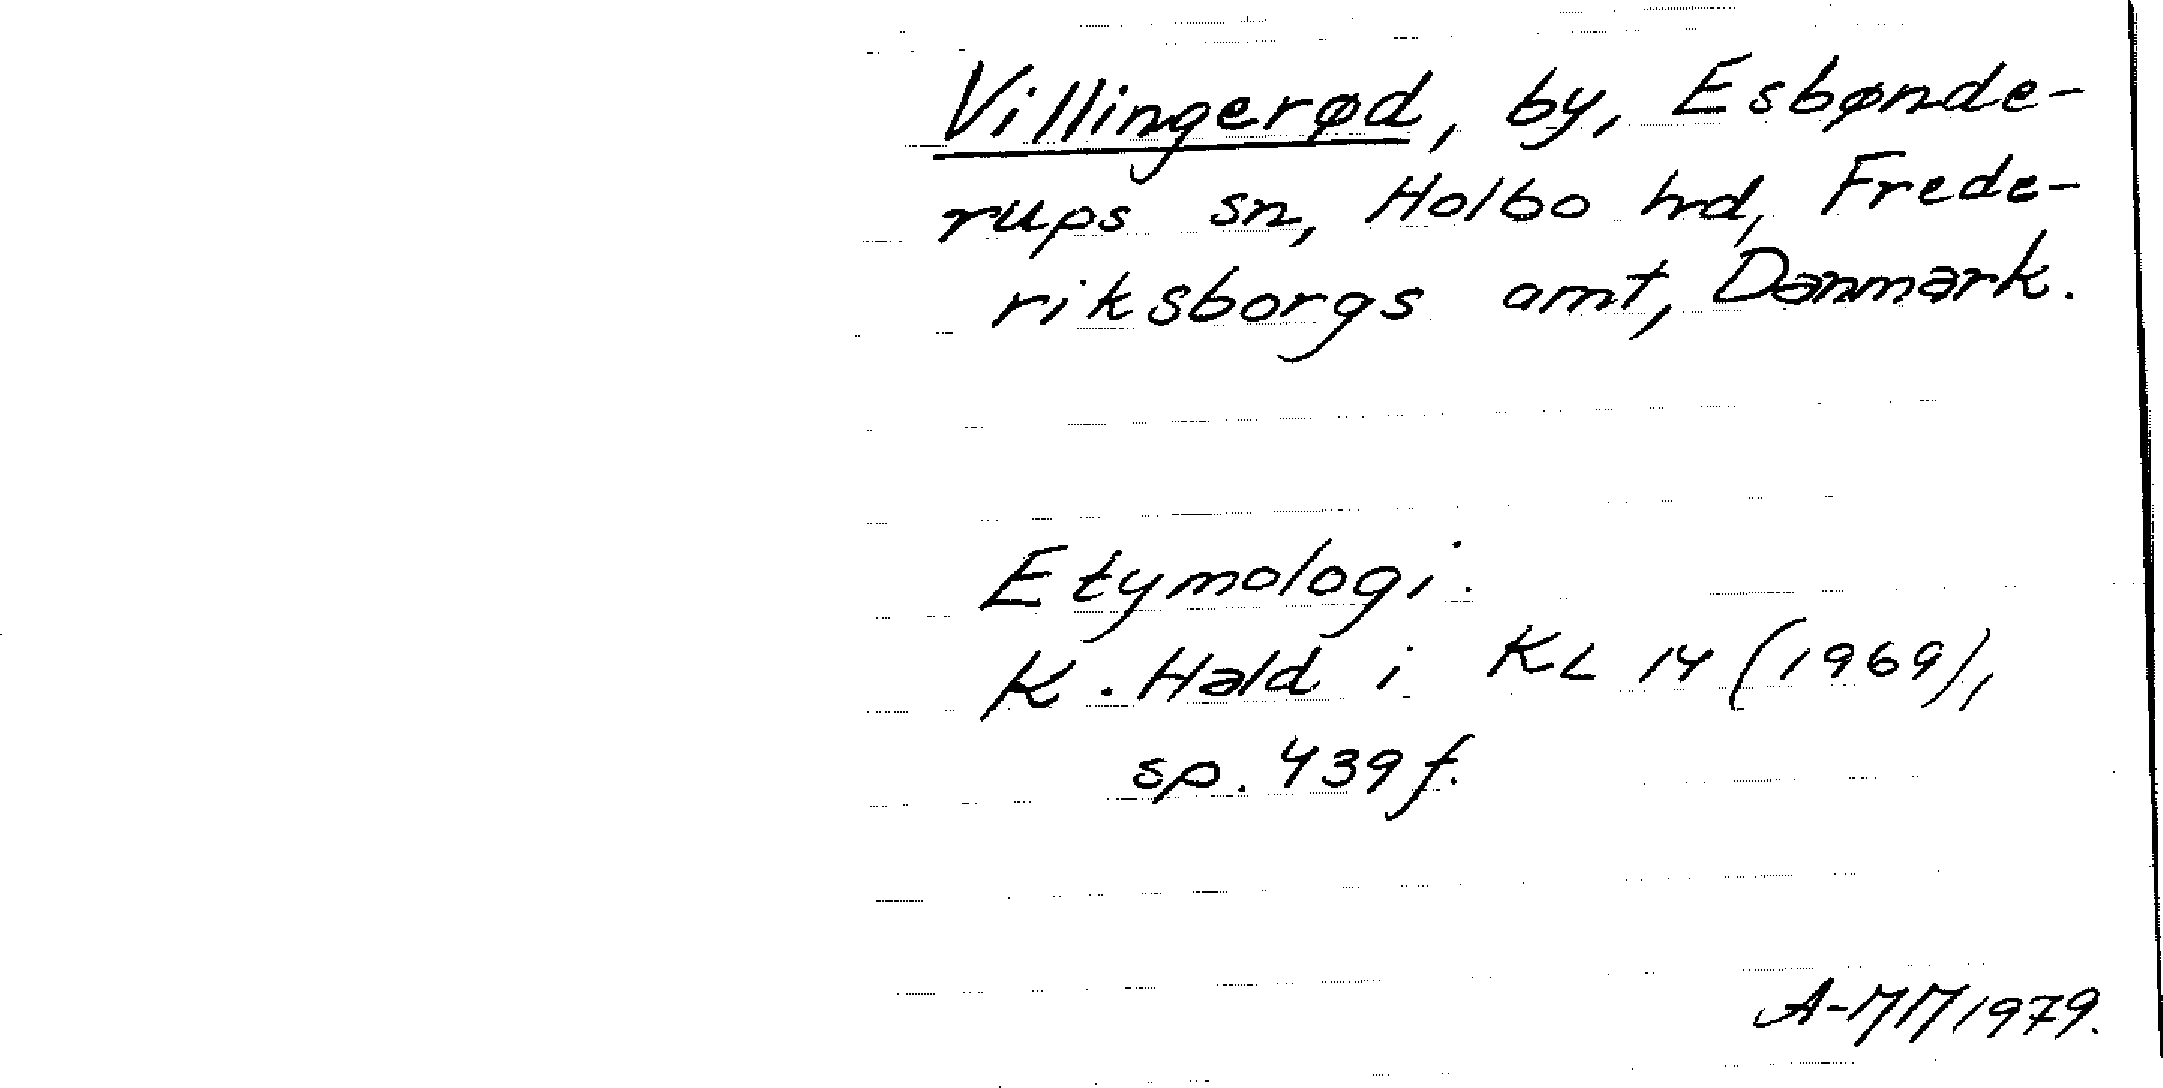 Villingerød, by, Esbønde-
rups sn, Holbo hrd, Frede-
riksborgs amt, Danmark.
Etymologi.
K. Hald i KL 14 (1969),
sp. 439 f.
A-MM 1979.